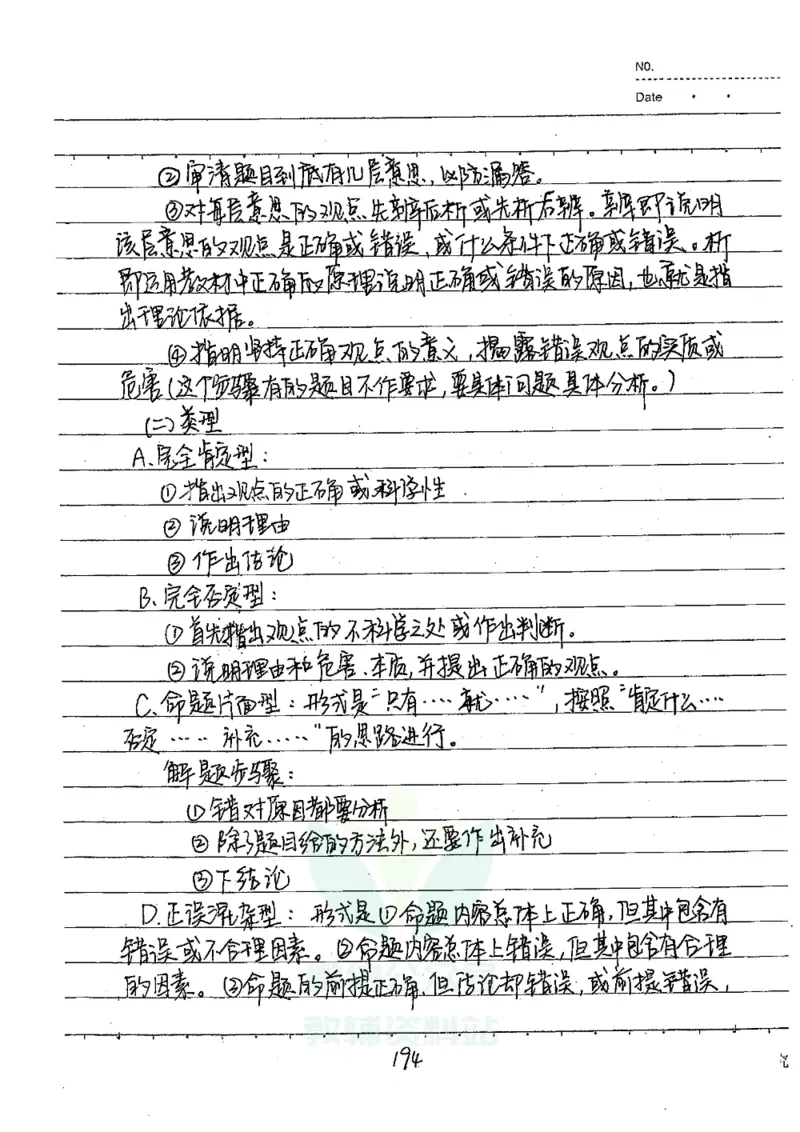 NO.
Date
②审清题目到底有几层意思，以防漏答。
③对每层意思的观点先辨后析或先析后辨。辨即说明
该层意思的观点是正确或错误，或什么条件下正确或错误。析
即运用教材中正确的原理说明正确或错误的原因，也就是指
出理论依据。
④指明坚持正确观点的意义，揭露错误观点的实质或
危害（这个步骤有的题目不作要求，要具体问题具体分析。）
(二)类型
A.完全肯定型：
①指出观点的正确或科学性
②说明理由
③作出结论
B.完全否定型：
①首先指出观点的不科学之处或作出判断。
②说明理由和危害、本质，并提出正确的观点。
C.命题片面型：形式是“只有……就……”，按照“肯定什么……
否定……补充……”的思路进行。
解题步骤：
①错对原因都要分析
②除了题目给的方法外，还要作出补充
③下结论
D.正误混杂型：形式是①命题内容总体上正确，但其中包含有
错误或不合理因素。②命题内容总体上错误，但其中包含有合理
的因素。③命题的前提正确，但结论却错误，或前提错误，
教辅资料站
194